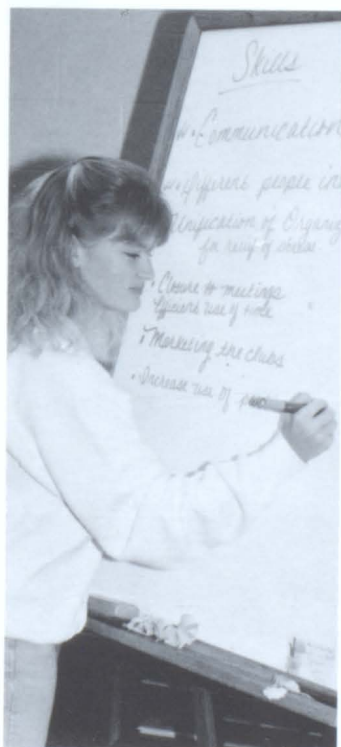 Skills
Communication
different people in
Unification of Organiz
for
• Closure to meetings
Efficient use of time
• Marketing the clubs
• Increase use of